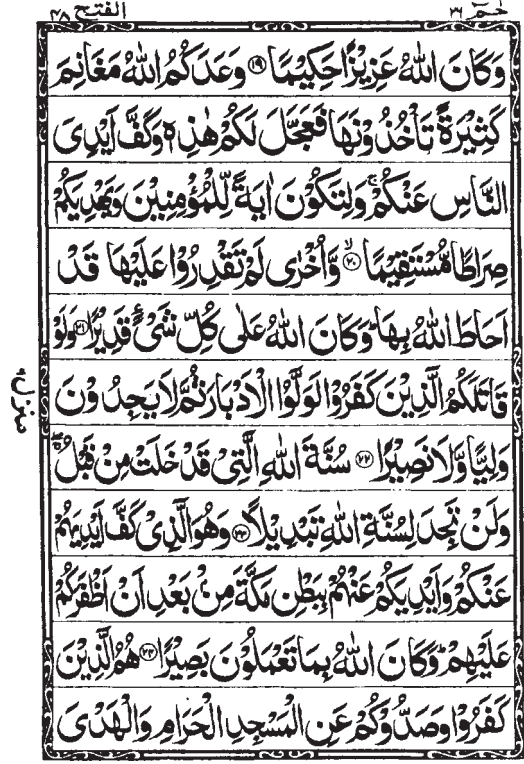 حٰمٓ ۲۶ الفتح ۴۸
وَكَانَ اللهُ عَزِيْزًا حَكِيْمًا ﴿۱۹﴾ وَعَدَكُمُ اللهُ مَغَانِمَ
كَثِيْرَةً تَاْخُذُوْنَهَا فَعَجَّلَ لَكُمْ هٰذِهٖ وَكَفَّ اَيْدِىَ
النَّاسِ عَنْكُمْ ۚ وَلِتَكُوْنَ اٰيَةً لِّلْمُؤْمِنِيْنَ وَيَهْدِيَكُمْ
صِرَاطًا مُّسْتَقِيْمًا ﴿۲۰﴾ وَّاُخْرٰى لَمْ تَقْدِرُوْا عَلَيْهَا قَدْ
اَحَاطَ اللهُ بِهَا ؕ وَكَانَ اللهُ عَلٰى كُلِّ شَىْءٍ قَدِيْرًا ﴿۲۱﴾ وَلَوْ
قَاتَلَكُمُ الَّذِيْنَ كَفَرُوْا لَوَلَّوُا الْاَدْبَارَ ثُمَّ لَا يَجِدُوْنَ
وَلِيًّا وَّلَا نَصِيْرًا ﴿۲۲﴾ سُنَّةَ اللهِ الَّتِىْ قَدْ خَلَتْ مِنْ قَبْلُ ۖۚ
وَلَنْ تَجِدَ لِسُنَّةِ اللهِ تَبْدِيْلًا ﴿۲۳﴾ وَهُوَ الَّذِىْ كَفَّ اَيْدِيَهُمْ
عَنْكُمْ وَاَيْدِيَكُمْ عَنْهُمْ بِبَطْنِ مَكَّةَ مِنْ بَعْدِ اَنْ اَظْفَرَكُمْ
عَلَيْهِمْ ؕ وَكَانَ اللهُ بِمَا تَعْمَلُوْنَ بَصِيْرًا ﴿۲۴﴾ هُمُ الَّذِيْنَ
كَفَرُوْا وَصَدُّوْكُمْ عَنِ الْمَسْجِدِ الْحَرَامِ وَالْهَدْىَ
منزل ۶